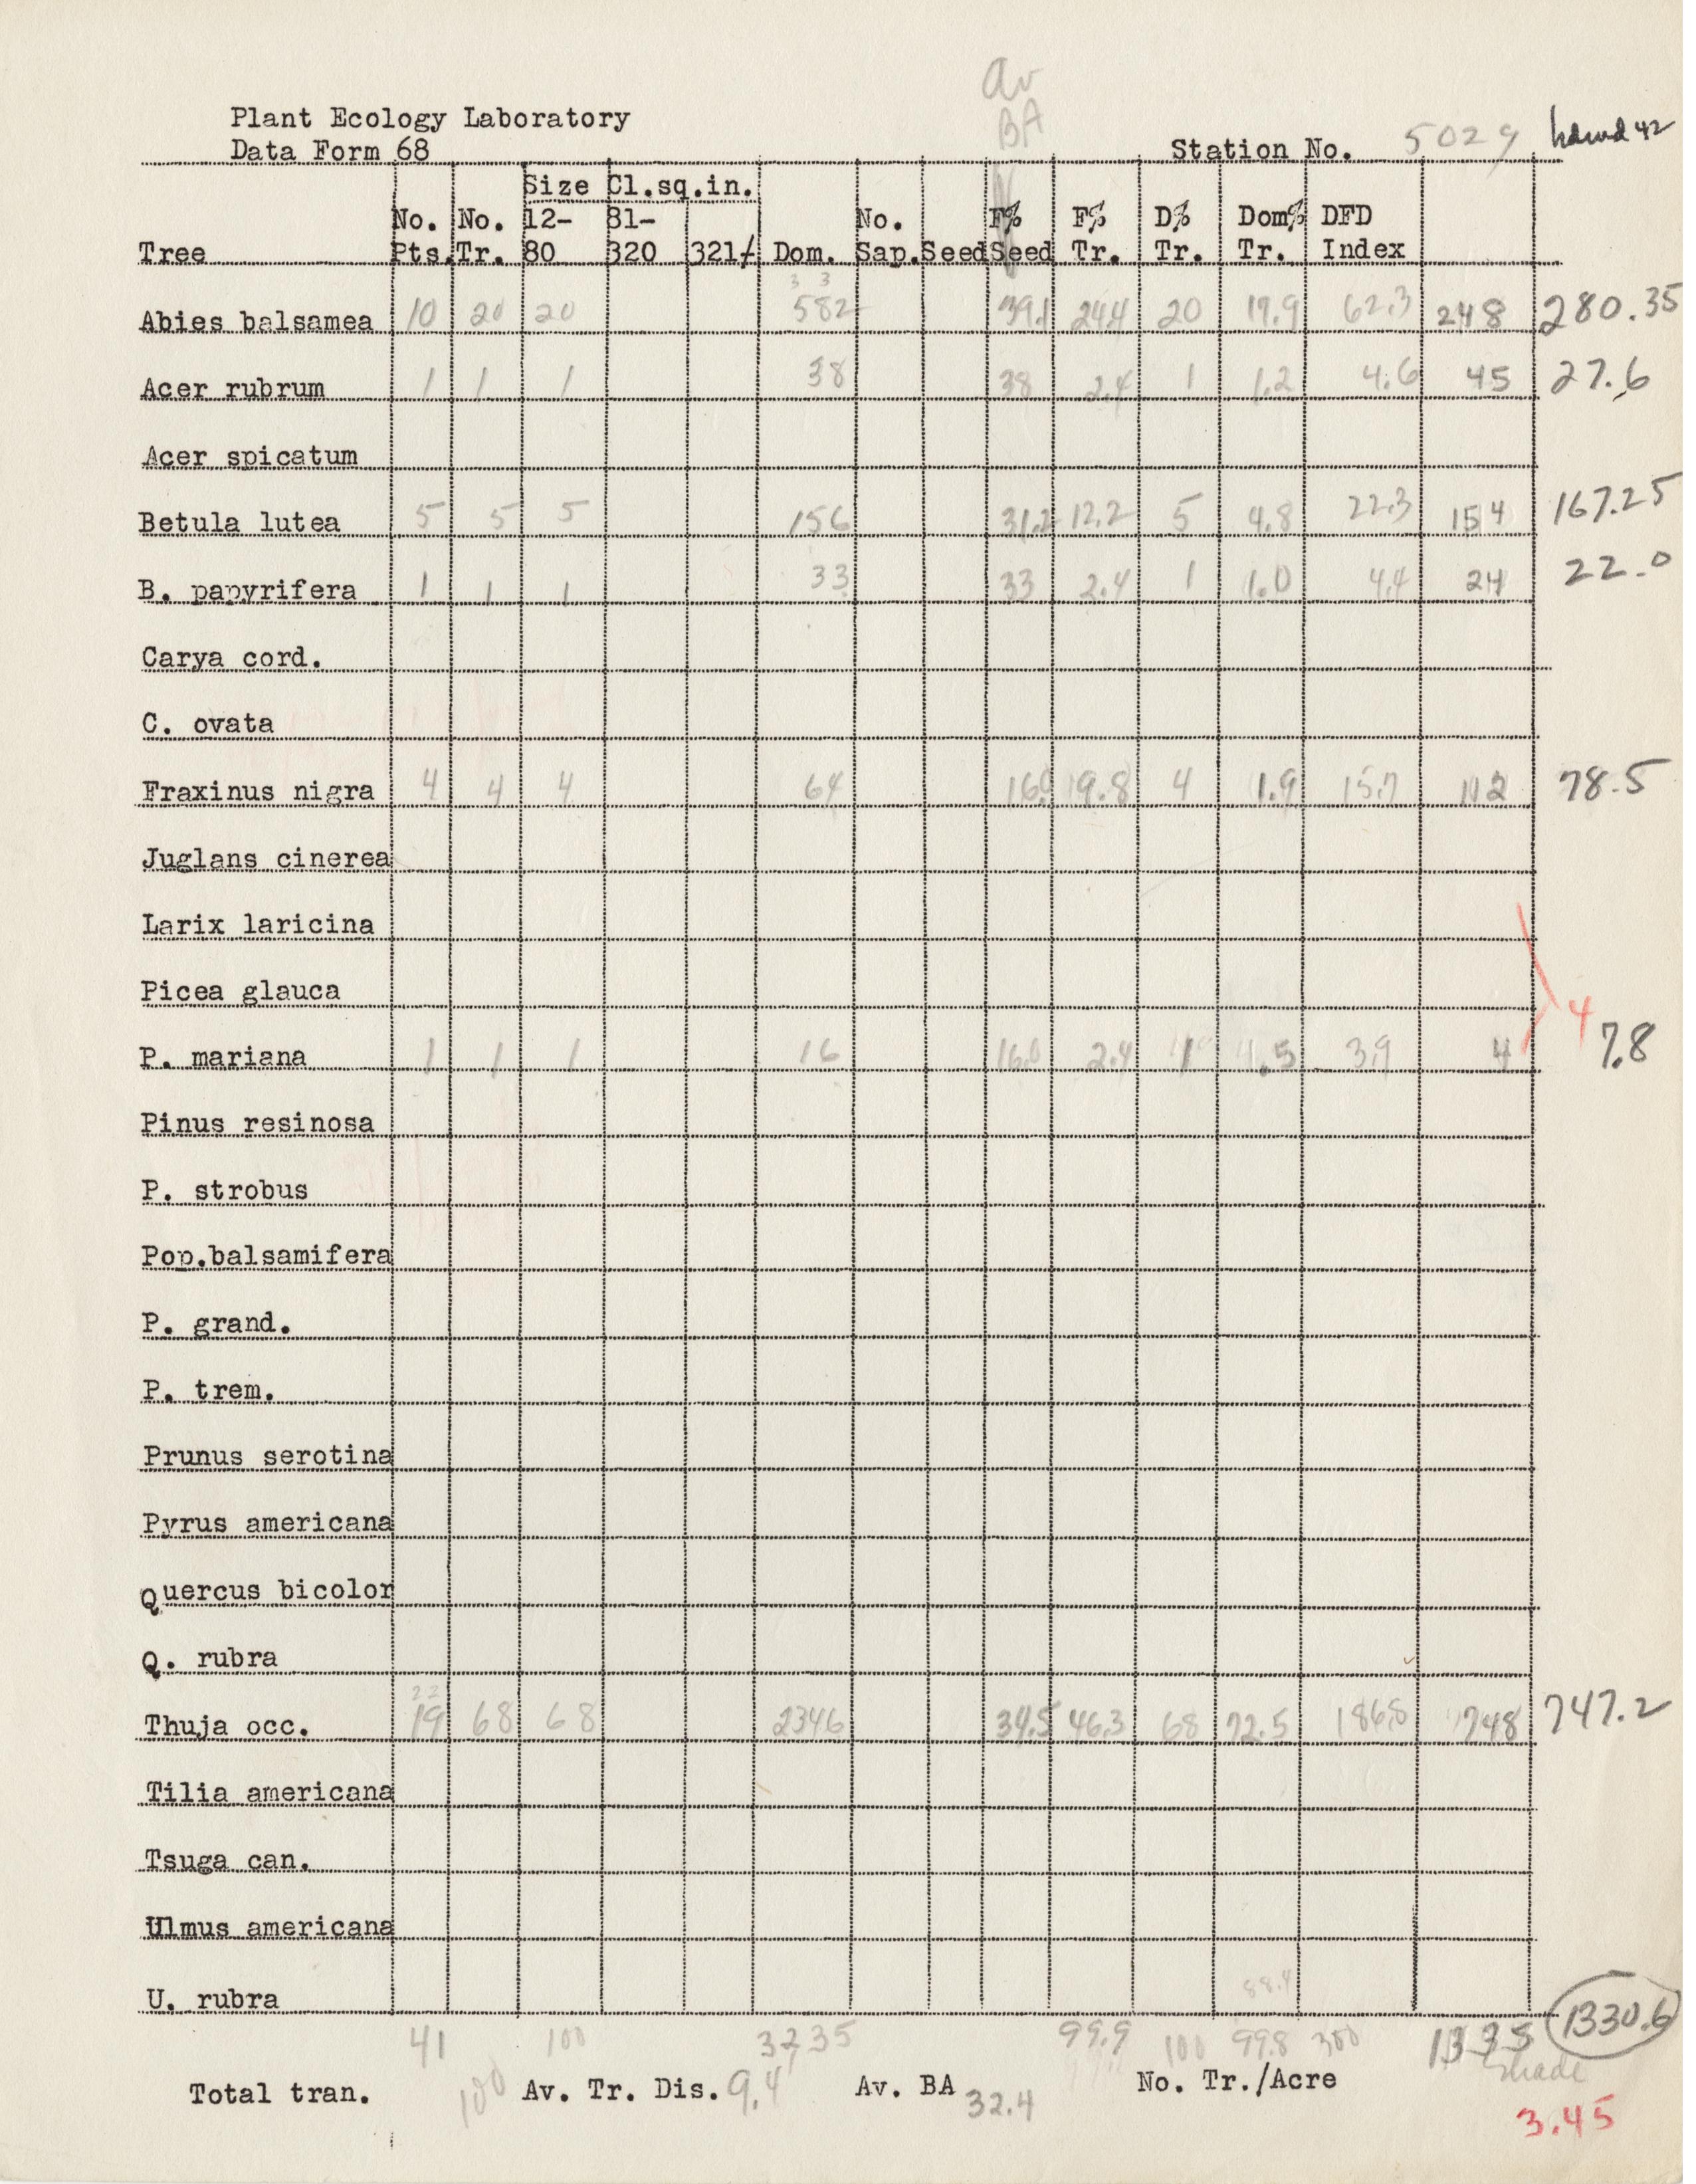 av
BA
Plant Ecology Laboratory
Data Form 68 Station No. 5029
Size Cl.sq.in.
No. No. 12- 81- No. F% F% D% Dom% DFD
Tree Pts. Tr. 80 320 321+ Dom. Sap. Seed Seed Tr. Tr. Tr. Index
3 3
Abies balsamea 10 20 20 582 39.1 24.4 20 17.9 62.3 248 280.35
Acer rubrum 1 1 1 38 38 2.4 1 1.2 4.6 45 27.6
Acer spicatum
Betula lutea 5 5 5 156 31.2 12.2 5 4.8 22.3 154 167.25
B. papyrifera 1 1 1 33 33 2.4 1 1.0 4.4 24 22.0
Carya cord.
C. ovata
Fraxinus nigra 4 4 4 64 16.0 9.8 4 1.9 15.7 112 78.5
Juglans cinerea
Larix laricina
Picea glauca
4
P. mariana 1 1 1 16 16.0 2.4 1 .5 3.9 4 7.8
Pinus resinosa
P. strobus
Pop.balsamifera
P. grand.
P. trem.
Prunus serotina
Pyrus americana
Quercus bicolor
Q. rubra
22
Thuja occ. 19 68 68 2346 34.5 46.3 68 72.5 186.8 748 747.2
Tilia americana
Tsuga can.
Ulmus americana
88.4
U. rubra
41 100 3235 99.9 100 99.8 300 1335 1330.6
Shade
Total tran. 100 Av. Tr. Dis. 9.4 Av. BA 32.4 No. Tr./Acre
3.45